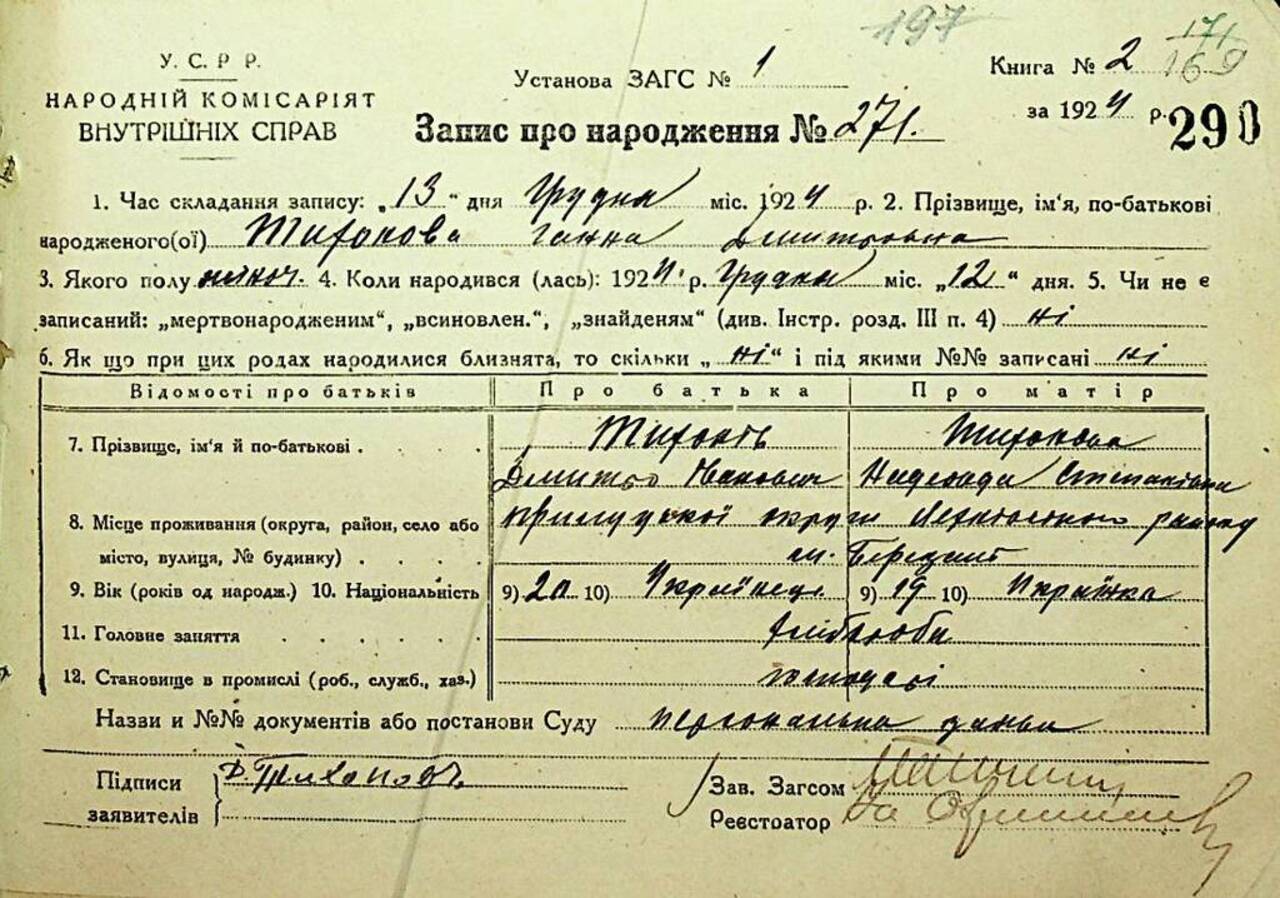 197
171
169
У. С. Р Р.
НАРОДНІЙ КОМІСАРІЯТ
ВНУТРІШНІХ СПРАВ
Установа ЗАГС № 1
Книга № 2
за 1924 р.
290
Запис про народження № 271.
1. Час складання запису: „13“ дня Грудня міс. 1924 р. 2. Прізвище, ім'я, по-батькові
народженого(ої) Тихонова Ганна Дмитровна
3. Якого полу жіноч. 4. Коли народився (лась): 1924 р. Грудня міс. „12“ дня. 5. Чи не є
записаний: „мертвонародженим“, „всиновлен.“, „знайденям“ (див. Інстр. розд. III п. 4) ні
6. Як що при цих родах народилися близнята, то скільки „ні“ і під якими №№ записані ні
Відомості про батьків Про батька Про матір
7. Прізвище, ім'я й по-батькові . . . . Тихонів Тихонова
Дмитро Іванович Надежда Степановна
8. Місце проживання (округа, район, село або Прилуцкої округи району
місто, вулиця, № будинку) . . . . м. Березань
9. Вік (років од народж.) 10. Національність 9) 20 10) Українець 9) 19 10) Українка
11. Головне заняття . . . . . . хліборобі
12. Становище в промислі (роб., служб., хаз.) господарі
Назви и №№ документів або постанови Суду персональна
Підписи Д. Тихоновъ
заявителів
Зав. Загсом
Реєстратор